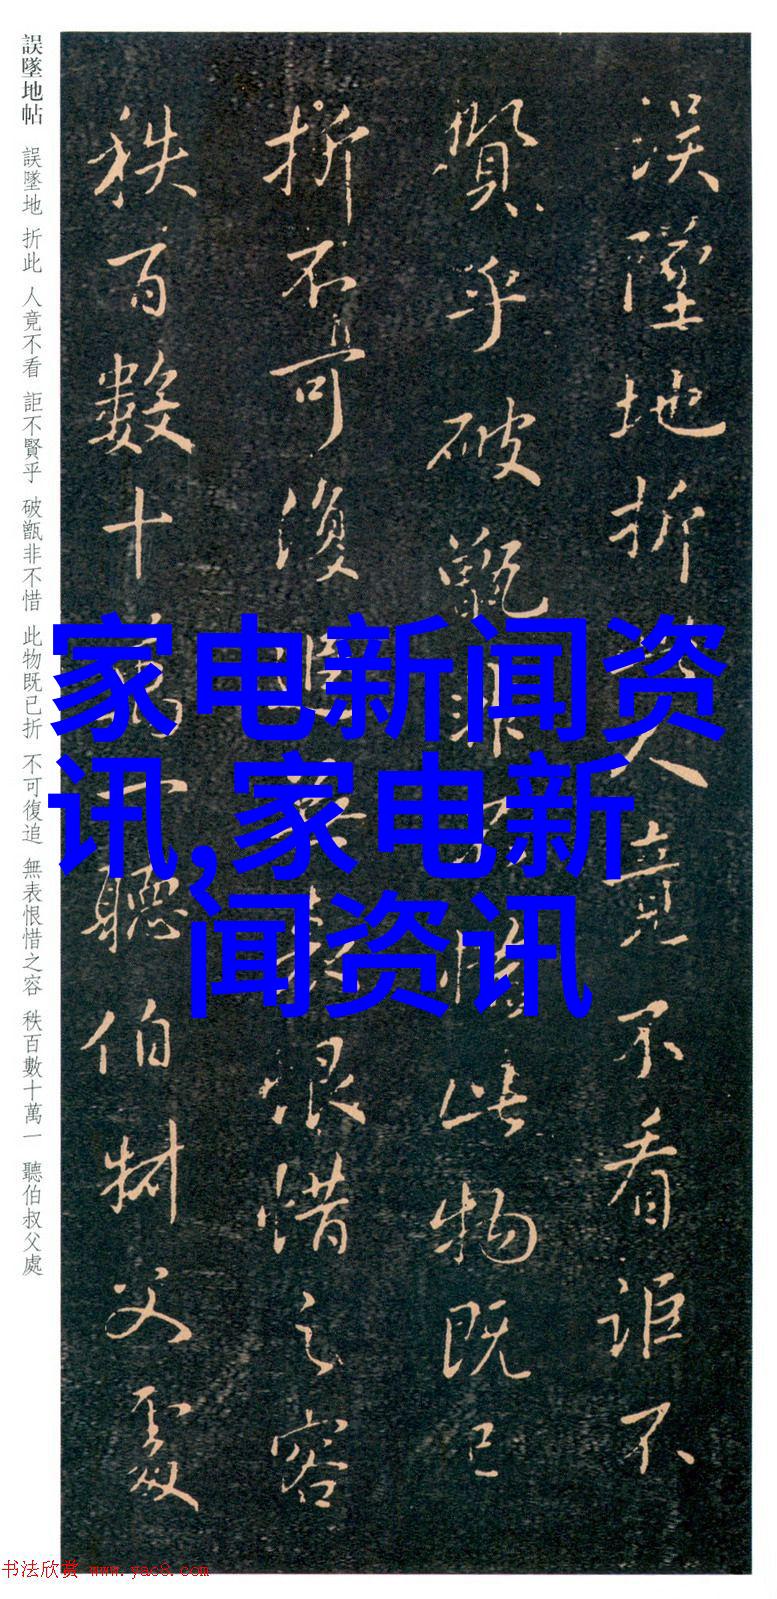 誤墜地折此人竟不看詎不
賢乎破甑非不惜此物既已
折不可復追無表恨惜之容
秩百數十萬一聽伯叔父處
誤墜地帖 誤墜地 折此 人竟不看 詎不賢乎 破甑非不惜 此物既已折 不可復追 無表恨惜之容 秩百數十萬一 聽伯叔父處
家电新闻资
讯,家电新
闻资讯
书法欣赏 www.yac8.com